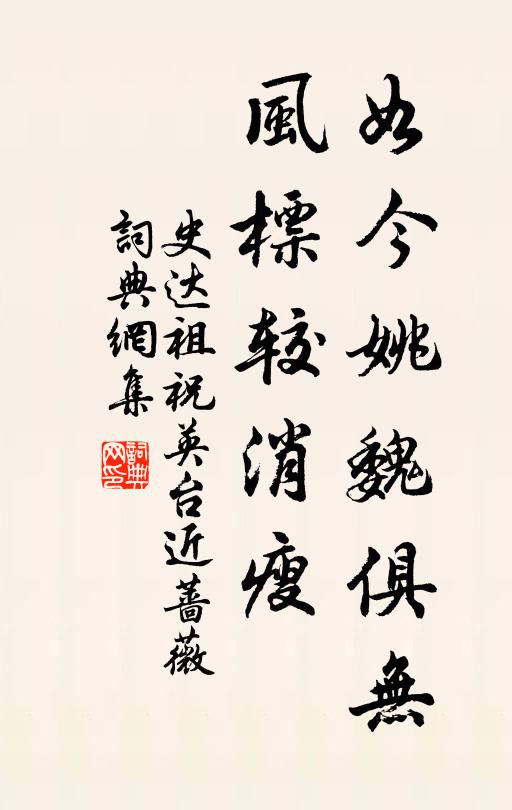 如今姚魏俱無
風標较消瘦
史达祖祝英台近蔷薇
詞典網集
詞典网印